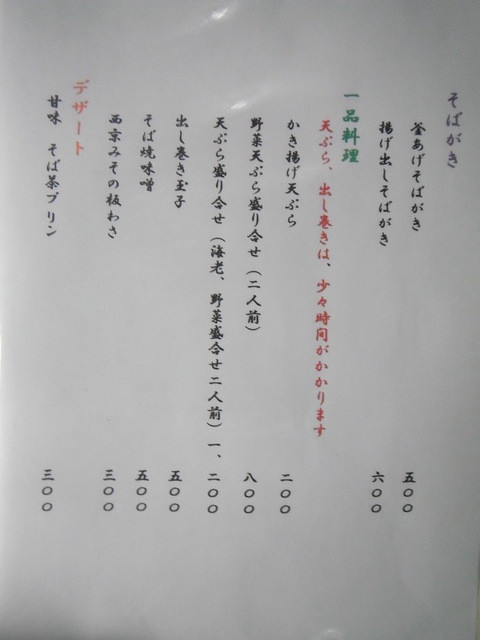 そばがき
釜あげそばがき 五〇〇
揚げ出しそばがき 六〇〇
一品料理
天ぷら、出し巻きは、少々時間がかかります
かき揚げ天ぷら 二〇〇
野菜天ぷら盛り合せ（二人前） 八〇〇
天ぷら盛り合せ（海老、野菜盛合せ二人前） 一、二〇〇
出し巻き玉子 五〇〇
そば焼味噌 五〇〇
西京みその板わさ 三〇〇
デザート
甘味 そば茶プリン 三〇〇